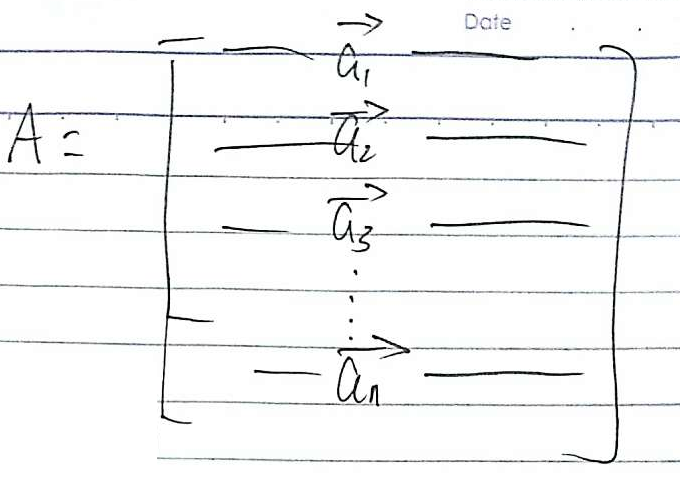 Date
a₁
A = a₂
a₃
⋮
aₙ